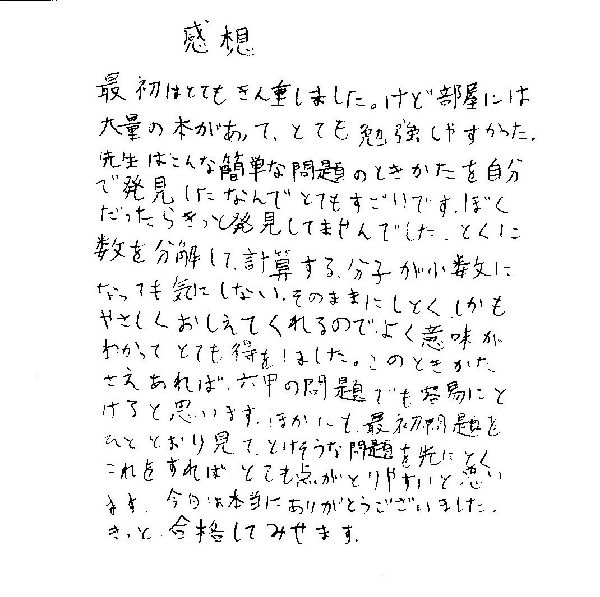 感想
最初はとてもきん重しました。けど部屋には
大量の本があって、とても勉強しやすかった。
先生はこんな簡単な問題のときかたを自分
で発見したなんてとてもすごいです。ぼく
だったらきっと発見してませんでした。とくに
数を分解して、計算する、分子が小数に
なっても気にしない、そのままにしとく、しかも
やさしくおしえてくれるので、よく意味が
わかってとても得をしました。このときかた
さえあれば、六甲の問題でも容易にと
けると思います。ほかにも、最初問題を
ひととおり見て、とけそうな問題を先にとく
これをすればとても点がとりやすいと思い
ます。今日は本当にありがとうございました。
きっと、合格してみせます。